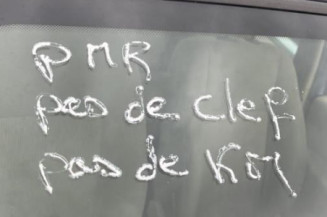 PMR
pas de clef
pas de Key